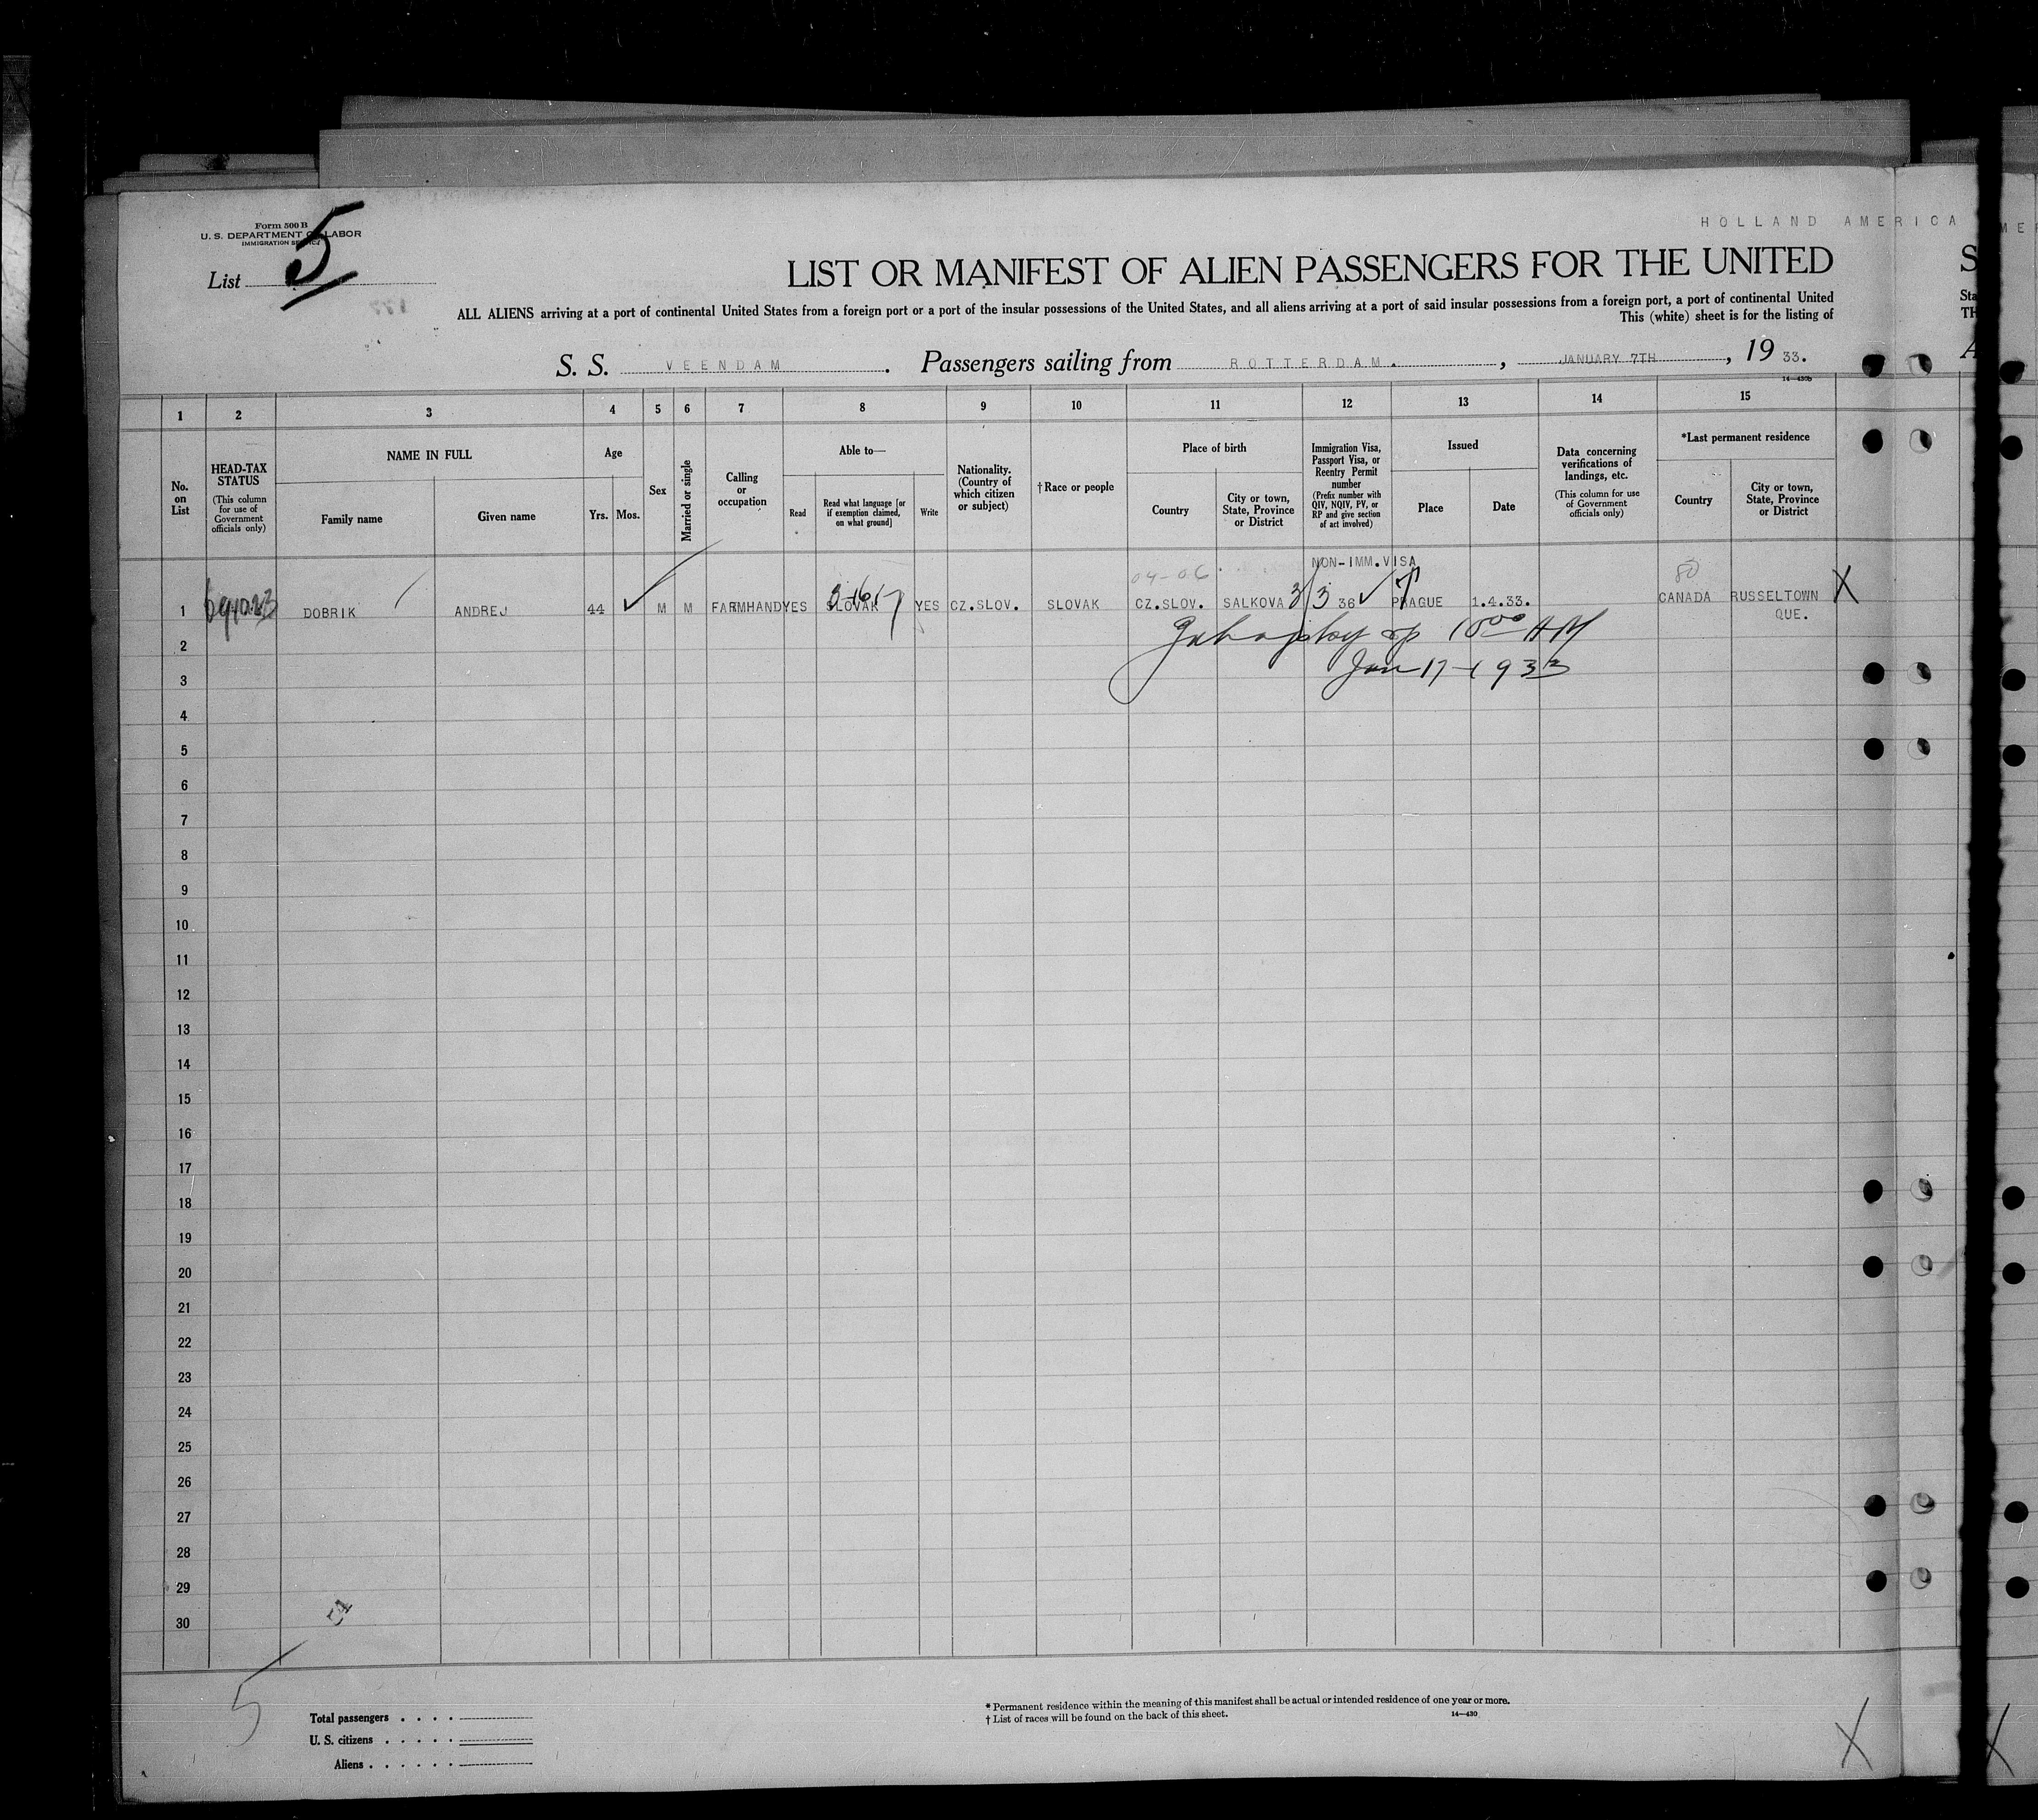 HOLLAND AMERICA
Form 500 B
U. S. DEPARTMENT OF LABOR
IMMIGRATION SERVICE
List 5
LIST OR MANIFEST OF ALIEN PASSENGERS FOR THE UNITED
ALL ALIENS arriving at a port of continental United States from a foreign port or a port of the insular possessions of the United States, and all aliens arriving at a port of said insular possessions from a foreign port, a port of continental United
This (white) sheet is for the listing of
S. S. VEENDAM. Passengers sailing from ROTTERDAM., JANUARY 7TH, 19 33.
14-430b
1 2 3 4 5 6 7 8 9 10 11 12 13 14 15
No. on List
HEAD-TAX STATUS (This column for use of Government officials only)
NAME IN FULL
Family name
Given name
Age
Yrs. Mos.
Sex
Married or single
Calling or occupation
Able to—
Read
Read what language [or if exemption claimed, on what ground]
Write
Nationality. (Country of which citizen or subject)
† Race or people
Place of birth
Country
City or town, State, Province or District
Immigration Visa, Passport Visa, or Reentry Permit number (Prefix number with QIV, NQIV, PV, or RP and give section of act involved)
Issued
Place
Date
Data concerning verifications of landings, etc. (This column for use of Government officials only)
*Last permanent residence
Country
City or town, State, Province or District
NON-IMM.VISA
04-06
1 DOBRIK ANDREJ 44 M M FARMHAND YES SLOVAK YES CZ.SLOV. SLOVAK CZ.SLOV. SALKOVA 3/3 36 PRAGUE 1.4.33. CANADA RUSSELTOWN X
QUE.
2 10 00 AM
3 Jan 17 - 1933
4
5
6
7
8
9
10
11
12
13
14
15
16
17
18
19
20
21
22
23
24
25
26
27
28
29
30
5
Total passengers
U. S. citizens
Aliens
* Permanent residence within the meaning of this manifest shall be actual or intended residence of one year or more.
† List of races will be found on the back of this sheet.
14-430
X
X